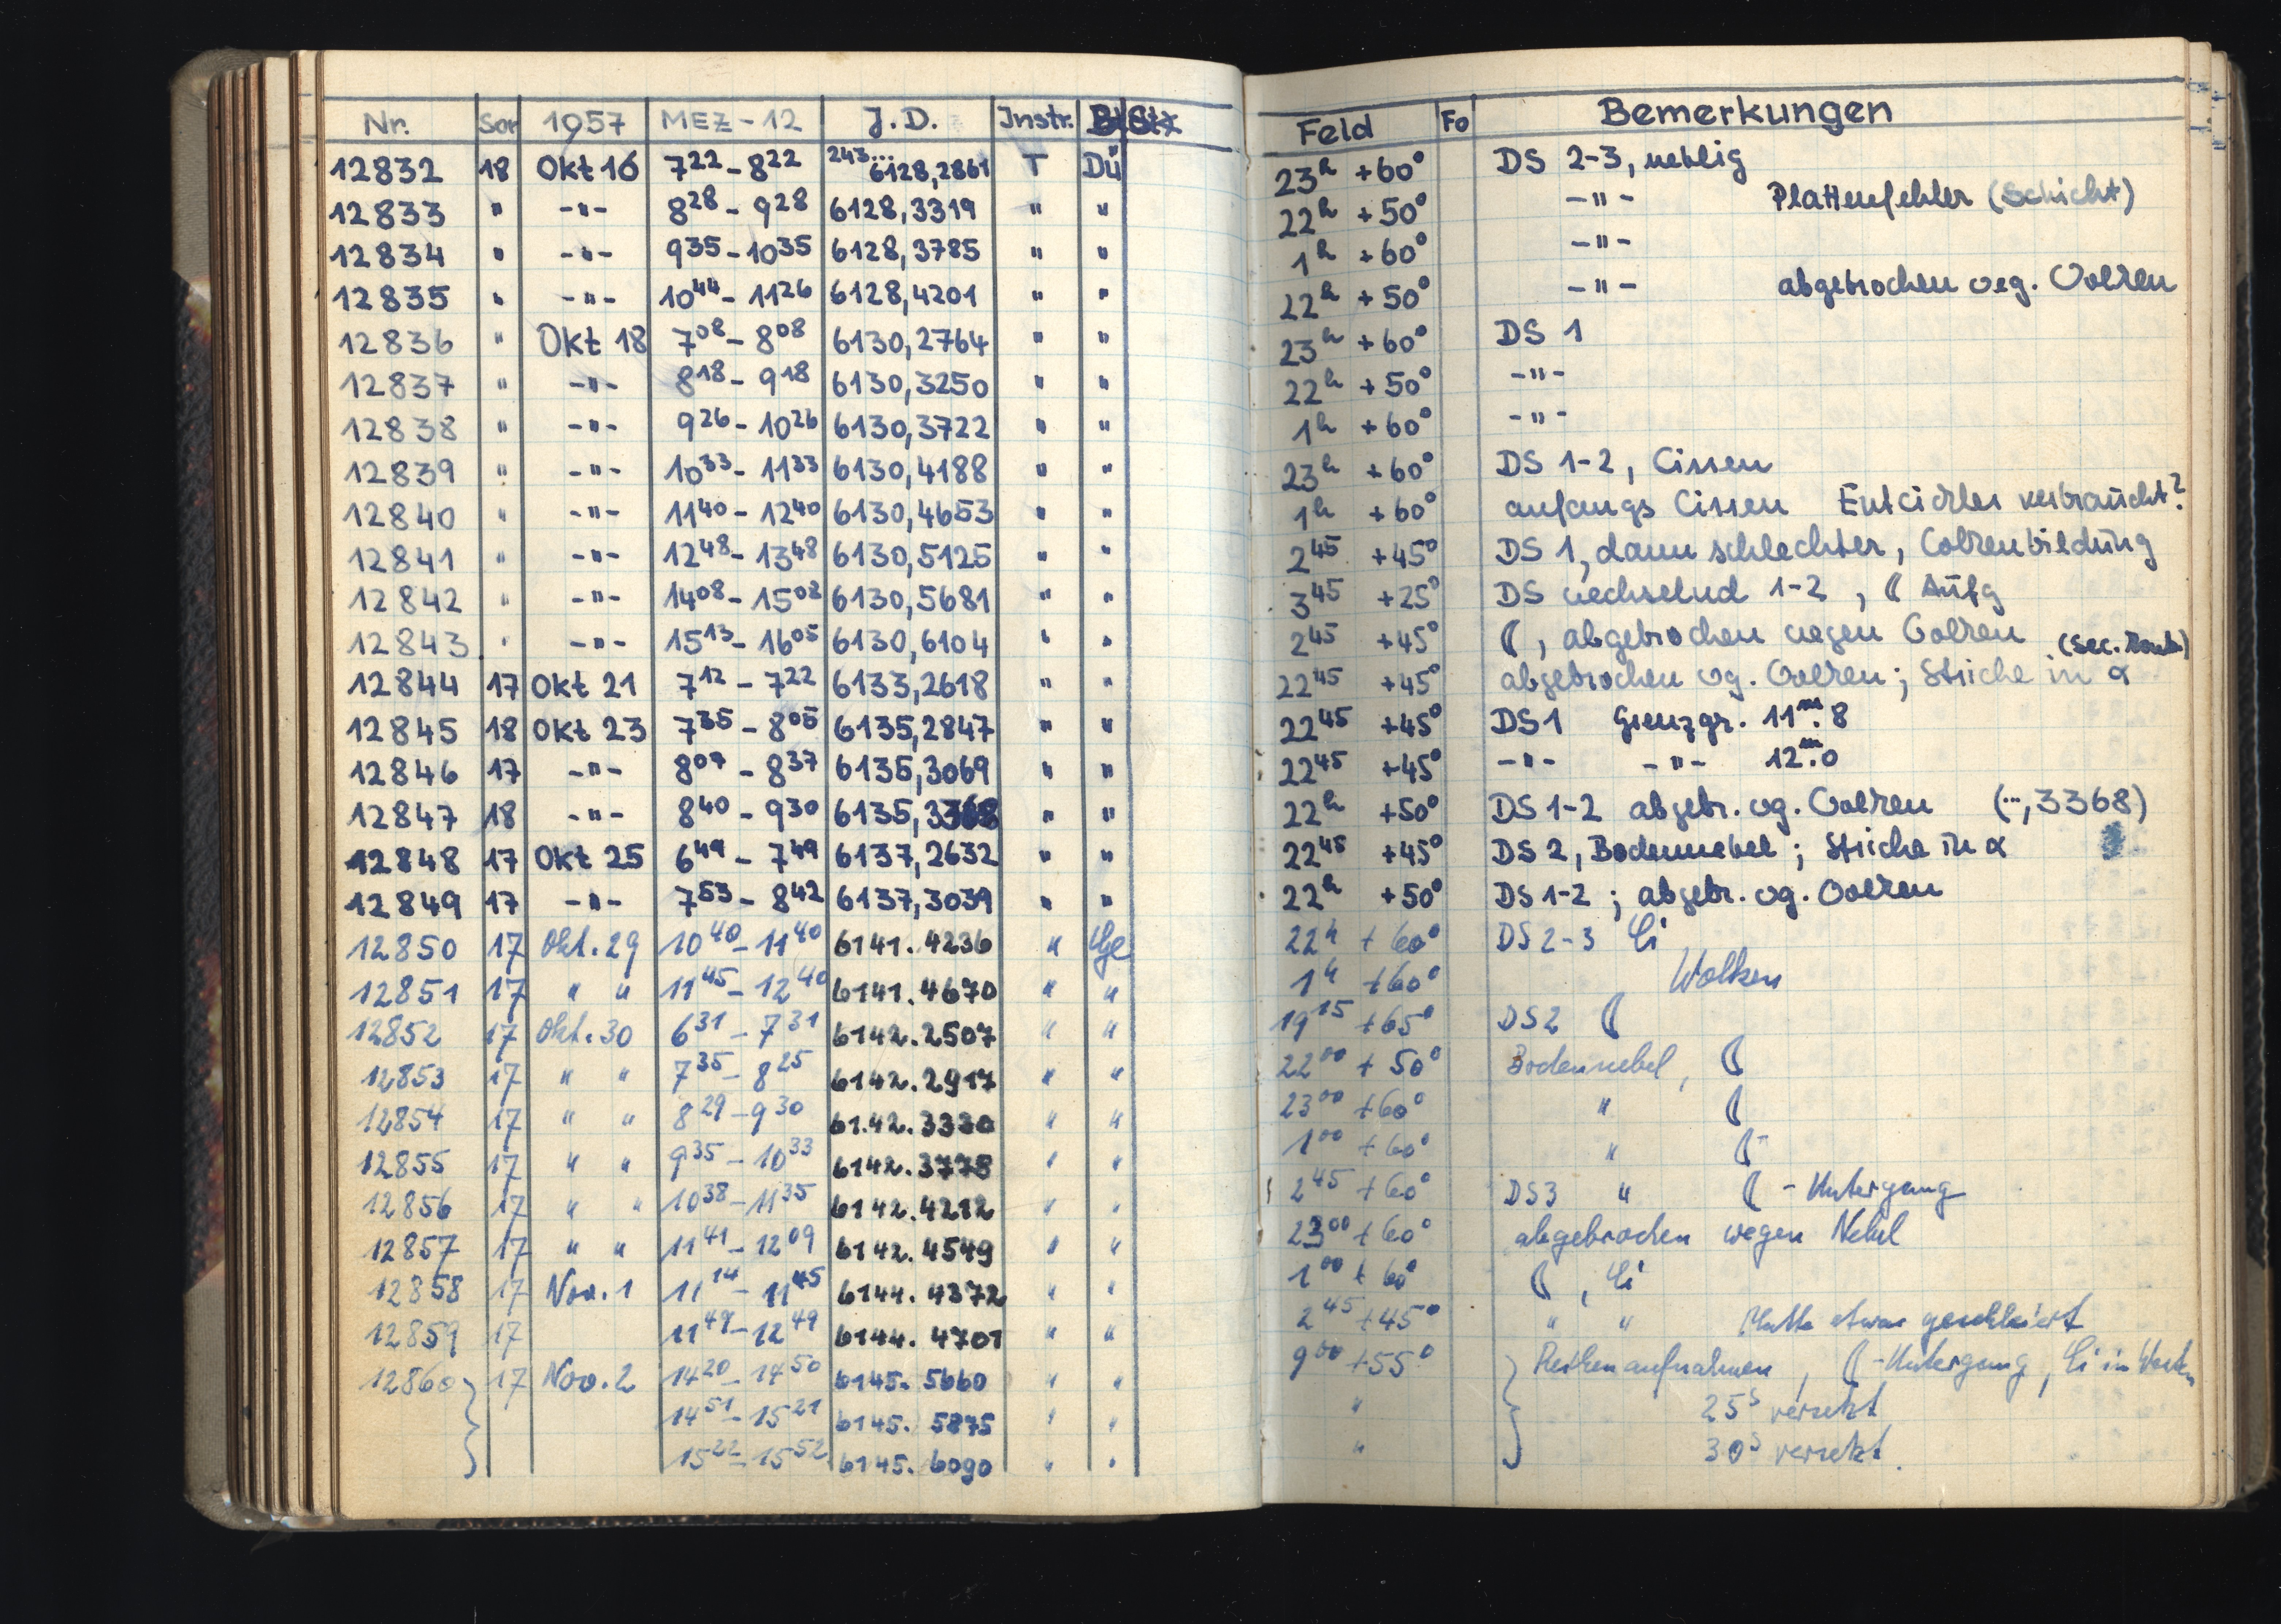 Nr. Sor 1957 MEZ-12 J.D. Instr. Feld Fo Bemerkungen
12832 18 Okt 16 7 22 - 8 22 243... 6128,2861 T Dü 23h +60° DS 2-3, neblig
12833 " -"- 8 28 - 9 28 6128,3319 " " 22h +50° -"- Plattenfehler (Schicht)
12834 " -"- 9 35 - 10 35 6128,3785 " " 1h +60° -"-
12835 " -"- 10 44 - 11 26 6128,4201 " " 22h +50° -"- abgebrochen weg. Wolken
12836 " Okt 18 7 08 - 8 08 6130,2764 " " 23h +60° DS 1
12837 " -"- 8 18 - 9 18 6130,3250 " " 22h +50° -"-
12838 " -"- 9 26 - 10 26 6130,3722 " " 1h +60° -"-
12839 " -"- 10 33 - 11 33 6130,4188 " " 23h +60° DS 1-2, Cirren
12840 " -"- 11 40 - 12 40 6130,4653 " " 1h +60° anfangs Cirren Entwickler verbraucht?
12841 " -"- 12 48 - 13 48 6130,5125 " " 2 45 +45° DS 1, dann schlechter, Wolkenbildung
12842 " -"- 14 08 - 15 08 6130,5681 " " 3 45 +25° DS wechselnd 1-2, ☾ Aufg
12843 " -"- 15 13 - 16 05 6130,6104 " " 2 45 +45° ☾, abgebrochen wegen Wolken
12844 17 Okt 21 7 12 - 7 22 6133,2618 " " 22 45 +45° abgebrochen wg. Wolken; Striche in α
12845 18 Okt 23 7 35 - 8 05 6135,2847 " " 22 45 +45° DS 1 Grenzgr. 11m.8
12846 17 -"- 8 07 - 8 37 6135,3069 " " 22 45 +45° -"- -"- 12m.0
12847 18 -"- 8 40 - 9 30 6135,3368 " " 22h +50° DS 1-2 abgebr. wg. Wolken (...,3368)
12848 17 Okt 25 6 49 - 7 49 6137,2632 " " 22 45 +45° DS 2, Bodennebel; Striche in α
12849 17 -"- 7 53 - 8 42 6137,3039 " " 22h +50° DS 1-2; abgebr. wg. Wolken
12850 17 Okt. 29 10 40 - 11 40 6141.4236 " Ge 22h +60° DS 2-3 Ci
12851 17 " " 11 45 - 12 40 6141.4670 " " 1h +60° Wolken
12852 17 Okt. 30 6 31 - 7 31 6142.2507 " " 19 15 +65° DS 2 ☾
12853 17 " " 7 35 - 8 25 6142.2917 " " 22 00 +50° Bodennebel, ☾
12854 17 " " 8 29 - 9 30 6142.3330 " " 23 00 +60° " ☾
12855 17 " " 9 35 - 10 33 6142.3778 " " 1 00 +60° " ☾
12856 17 " " 10 38 - 11 35 6142.4212 " " 2 45 +60° DS3 " ☾ - Untergang
12857 17 " " 11 41 - 12 09 6142.4549 " " 23 00 +60° abgebrochen wegen Nebel
12858 17 Nov. 1 11 14 - 11 45 6144.4372 " " 1 00 +60° ☾, Ci
12859 17 11 49 - 12 49 6144.4701 " " 2 45 +45° " " Platte etwas geschleiert
12860 17 Nov. 2 14 20 - 14 50 6145.5660 " " 9 00 +55° Reihenaufnahmen, ☾-Untergang, Ci im Westen
14 51 - 15 21 6145.5875 " " " 25s versetzt
15 22 - 15 52 6145.6090 " " " 30s versetzt